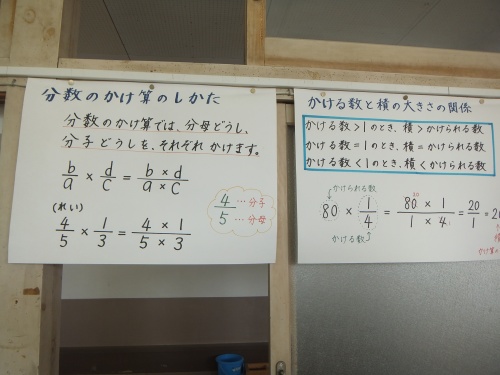 分数のかけ算のしかた
分数のかけ算では、分母どうし、
分子どうしを、それぞれ かけます。
b/a × d/c = b×d/a×c
(れい)
4/5 × 1/3 = 4×1/5×3
4 … 分子
5 … 分母
かける数と積の大きさの関係
かける数>1のとき、積>かけられる数
かける数=1のとき、積=かけられる数
かける数<1のとき、積<かけられる数
かけられる数
80 × 1/4 = 80×1/1×4 = 20/1 =
20
かける数